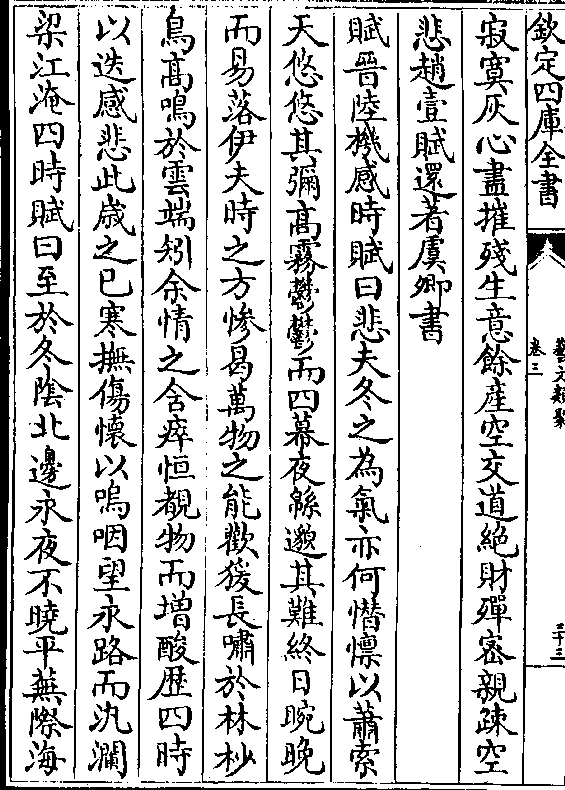 欽定四庫全書
藝文類聚
卷三
二十三
寂寞灰心盡摧殘生意餘産空交道絶財殫密親疎空
悲趙壹賦還著虞卿書
賦晉陸機感時賦曰悲夫冬之為氣亦何憯懍以蕭索
天悠悠其彌髙霧鬱鬱而四幕夜緜邈其難終日晼晚
而易落伊夫時之方慘曷萬物之能歡猨長嘯於林杪
鳥髙鳴於雲端矧余情之含瘁恒覩物而増酸歴四時
以迭感悲此歳之已寒撫傷懐以嗚咽望永路而汍瀾
梁江淹四時賦曰至於冬隂北邊永夜不曉平蕪際海